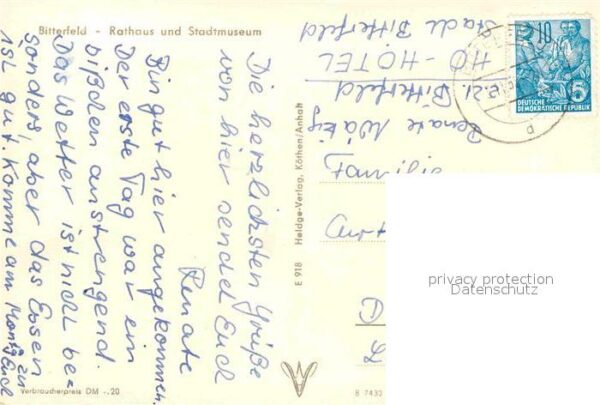 Bitterfeld - Rathaus und Stadtmuseum
Die herzlichsten Grüße
von hier sendet Euch
Renate
Bin gut hier angekommen.
Der erste Tag war ein
bißchen anstrengend.
Das Wetter ist nicht be-
sonders, aber das Essen
ist gut. Komme am Montg zu
Euch
Verbraucherpreis DM -.20
E 918 Heldge-Verlag, Köthen/Anhalt
B 7433
Renate
z.Zt. Bitterfeld
HO-HOTEL
Stadt Bitterfeld
10
5
DEUTSCHE
DEMOKRATISCHE REPUBLIK
privacy protection
Datenschutz